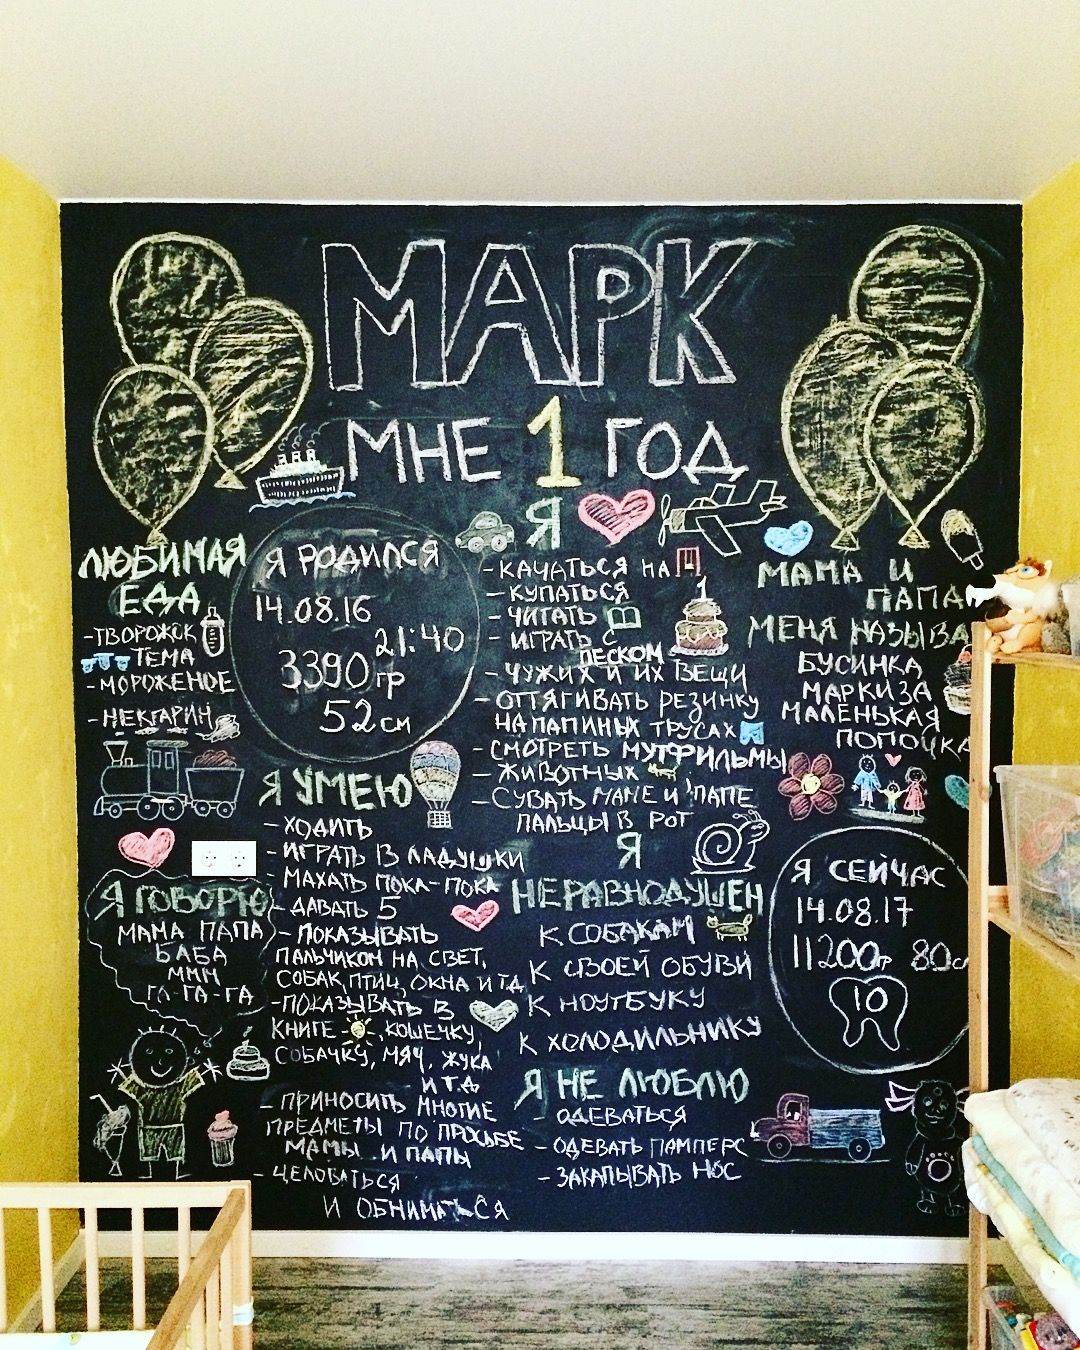 МАРК
МНЕ 1 ГОД
ЛЮБИМАЯ
ЕДА
-ТВОРОЖОК
ТЕМА
-МОРОЖЕНОЕ
-НЕКТАРИН
Я РОДИЛСЯ
14.08.16
21:40
3390 гр
52 см
Я
-КАЧАТЬСЯ НА
-КУПАТЬСЯ
-ЧИТАТЬ
-ИГРАТЬ С
ПЕСКОМ
-ЧУЖИХ И ИХ ВЕЩИ
-ОТТЯГИВАТЬ РЕЗИНКУ
НА ПАПИНЫХ ТРУСАХ
-СМОТРЕТЬ МУТФИЛЬМЫ
-ЖИВОТНЫХ
-СУВАТЬ МАМЕ И ПАПЕ
ПАЛЬЦЫ В РОТ
МАМА И
ПАПА
МЕНЯ НАЗЫВА
БУСИНКА
МАРКИЗА
МАЛЕНЬКАЯ
ПОПОЧКА
Я УМЕЮ
-ХОДИТЬ
-ИГРАТЬ В ЛАДУШКИ
-МАХАТЬ ПОКА-ПОКА
-ДАВАТЬ 5
-ПОКАЗЫВАТЬ
ПАЛЬЧИКОМ НА СВЕТ,
СОБАК, ПТИЦ, ОКНА И Т.Д
-ПОКАЗЫВАТЬ В
КНИГЕ - , КОШЕЧКУ,
СОБАЧКУ, МЯЧ, ЖУКА
И Т.Д
-ПРИНОСИТЬ МНОГИЕ
ПРЕДМЕТЫ ПО ПРОСЬБЕ
МАМЫ И ПАПЫ
-ЦЕЛОВАТЬСЯ
И ОБНИМАТЬСЯ
Я ГОВОРЮ
МАМА ПАПА
БАБА
МММ
ГА-ГА-ГА
Я
НЕРАВНОДУШЕН
К СОБАКАМ
К СВОЕЙ ОБУВИ
К НОУТБУКУ
К ХОЛОДИЛЬНИКУ
Я НЕ ЛЮБЛЮ
-ОДЕВАТЬСЯ
-ОДЕВАТЬ ПАМПЕРС
-ЗАКАПЫВАТЬ НОС
Я СЕЙЧАС
14.08.17
11200г 80с
10
1